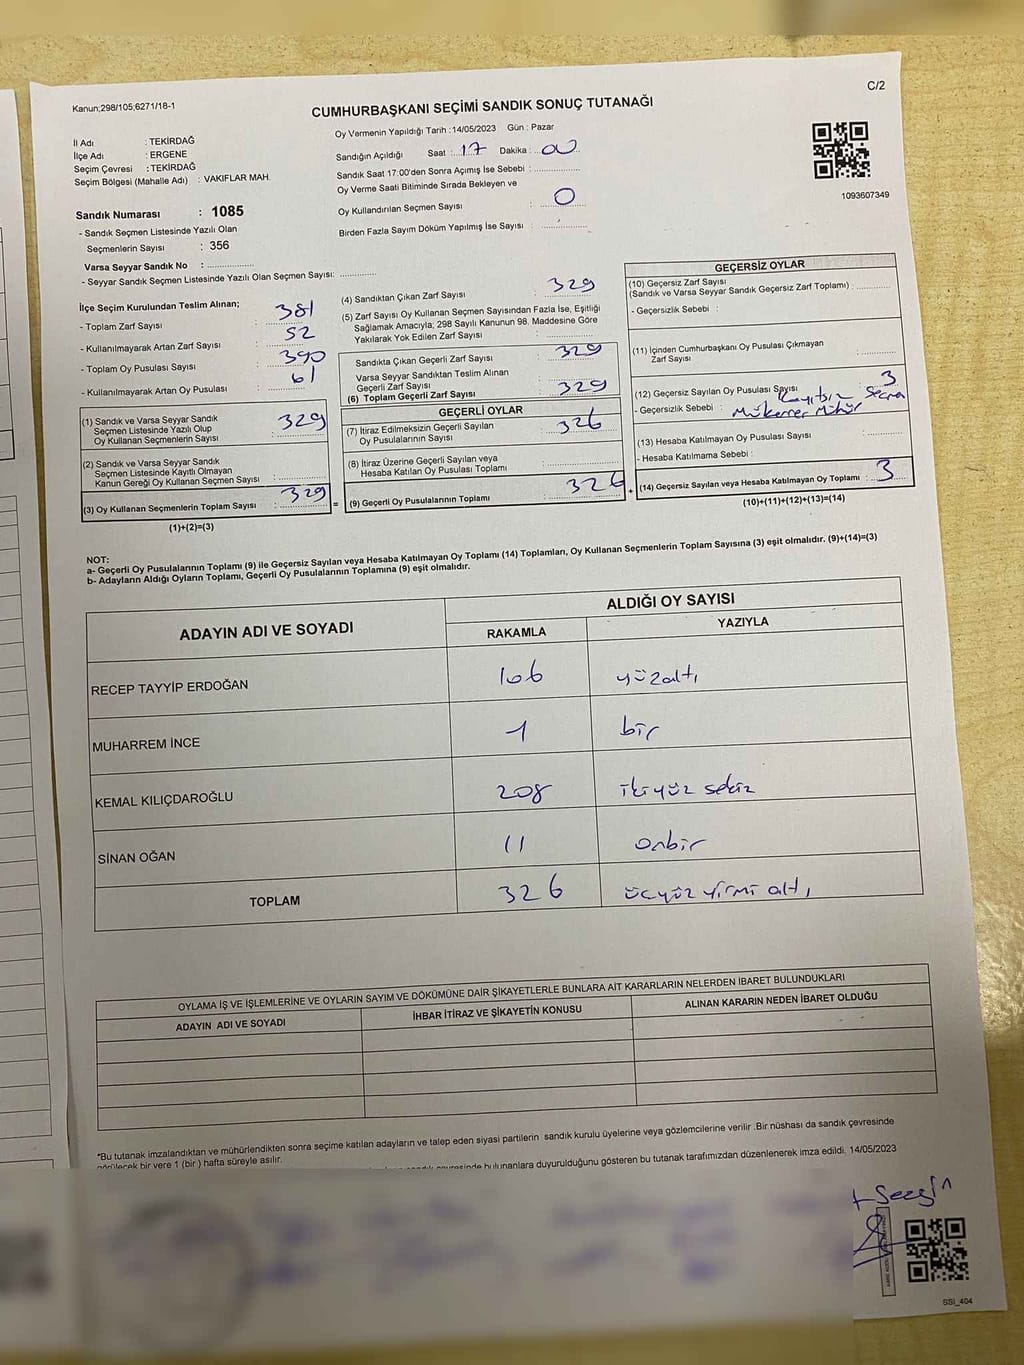 Kanun;298/105;6271/18-1
C/2
CUMHURBAŞKANI SEÇİMİ SANDIK SONUÇ TUTANAĞI
İl Adı : TEKİRDAĞ
İlçe Adı : ERGENE
Seçim Çevresi : TEKİRDAĞ
Seçim Bölgesi (Mahalle Adı) : VAKIFLAR MAH.
Oy Vermenin Yapıldığı Tarih :14/05/2023 Gün : Pazar
Sandığın Açıldığı Saat : 17 Dakika : 00
Sandık Saat 17:00'den Sonra Açımış İse Sebebi :
Oy Verme Saati Bitiminde Sırada Bekleyen ve
Oy Kullandırılan Seçmen Sayısı : 0
Birden Fazla Sayım Döküm Yapılmış İse Sayısı :
1093607349
Sandık Numarası : 1085
- Sandık Seçmen Listesinde Yazılı Olan
Seçmenlerin Sayısı : 356
Varsa Seyyar Sandık No :
- Seyyar Sandık Seçmen Listesinde Yazılı Olan Seçmen Sayısı:
İlçe Seçim Kurulundan Teslim Alınan;
- Toplam Zarf Sayısı : 381
- Kullanılmayarak Artan Zarf Sayısı : 52
- Toplam Oy Pusulası Sayısı : 390
- Kullanılmayarak Artan Oy Pusulası : 61
(1) Sandık ve Varsa Seyyar Sandık
Seçmen Listesinde Yazılı Olup
Oy Kullanan Seçmenlerin Sayısı : 329
(2) Sandık ve Varsa Seyyar Sandık
Seçmen Listesinde Kayıtlı Olmayan
Kanun Gereği Oy Kullanan Seçmen Sayısı :
(3) Oy Kullanan Seçmenlerin Toplam Sayısı : 329
(1)+(2)=(3)
(4) Sandıktan Çıkan Zarf Sayısı : 329
(5) Zarf Sayısı Oy Kullanan Seçmen Sayısından Fazla İse, Eşitliği
Sağlamak Amacıyla; 298 Sayılı Kanunun 98. Maddesine Göre
Yakılarak Yok Edilen Zarf Sayısı :
Sandıkta Çıkan Geçerli Zarf Sayısı : 329
Varsa Seyyar Sandıktan Teslim Alınan
Geçerli Zarf Sayısı :
(6) Toplam Geçerli Zarf Sayısı : 329
GEÇERLİ OYLAR
(7) İtiraz Edilmeksizin Geçerli Sayılan
Oy Pusulalarının Sayısı : 326
(8) İtiraz Üzerine Geçerli Sayılan veya
Hesaba Katılan Oy Pusulası Toplamı :
= (9) Geçerli Oy Pusulalarının Toplamı : 326
GEÇERSİZ OYLAR
(10) Geçersiz Zarf Sayısı
(Sandık ve Varsa Seyyar Sandık Geçersiz Zarf Toplamı) :
- Geçersizlik Sebebi :
(11) İçinden Cumhurbaşkanı Oy Pusulası Çıkmayan
Zarf Sayısı :
(12) Geçersiz Sayılan Oy Pusulası Sayısı : 3
- Geçersizlik Sebebi : Kayıtsız Seçmen
Mükerrer Mühür
(13) Hesaba Katılmayan Oy Pusulası Sayısı :
- Hesaba Katılmama Sebebi :
+ (14) Geçersiz Sayılan veya Hesaba Katılmayan Oy Toplamı : 3
(10)+(11)+(12)+(13)=(14)
NOT:
a- Geçerli Oy Pusulalarının Toplamı (9) ile Geçersiz Sayılan veya Hesaba Katılmayan Oy Toplamı (14) Toplamları, Oy Kullanan Seçmenlerin Toplam Sayısına (3) eşit olmalıdır. (9)+(14)=(3)
b- Adayların Aldığı Oyların Toplamı, Geçerli Oy Pusulalarının Toplamına (9) eşit olmalıdır.
ADAYIN ADI VE SOYADI
ALDIĞI OY SAYISI
RAKAMLA YAZIYLA
RECEP TAYYİP ERDOĞAN 106 yüzaltı
MUHARREM İNCE 1 bir
KEMAL KILIÇDAROĞLU 208 ikiyüz sekiz
SİNAN OĞAN 11 onbir
TOPLAM 326 üçyüz yirmi altı
OYLAMA İŞ VE İŞLEMLERİNE VE OYLARIN SAYIM VE DÖKÜMÜNE DAİR ŞİKAYETLERLE BUNLARA AİT KARARLARIN NELERDEN İBARET BULUNDUKLARI
ADAYIN ADI VE SOYADI İHBAR İTİRAZ VE ŞİKAYETİN KONUSU ALINAN KARARIN NEDEN İBARET OLDUĞU
*Bu tutanak imzalandıktan ve mühürlendikten sonra seçime katılan adayların ve talep eden siyasi partilerin sandık kurulu üyelerine veya gözlemcilerine verilir .Bir nüshası da sandık çevresinde
görülecek bir yere 1 (bir ) hafta süreyle asılır.
bulunanlara duyurulduğunu gösteren bu tutanak tarafımızdan düzenlenerek imza edildi. 14/05/2023
SSİ_404